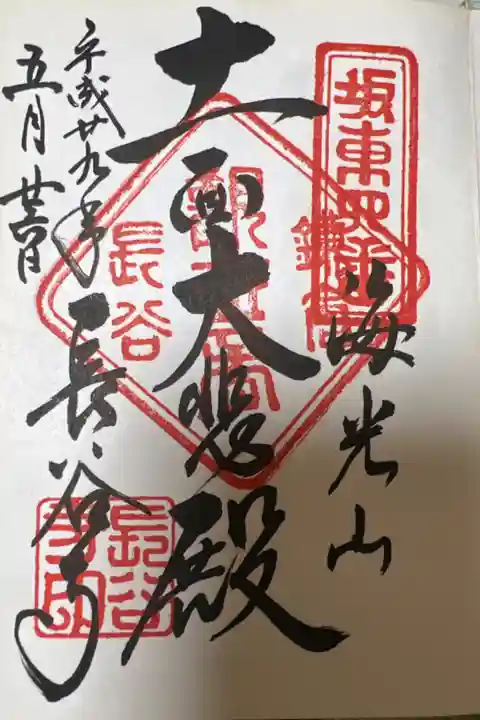 坂東四
海光山
十一面大悲殿
鎌倉
長谷
平成廿九年
五月廿六日
長谷寺
長谷
寺印